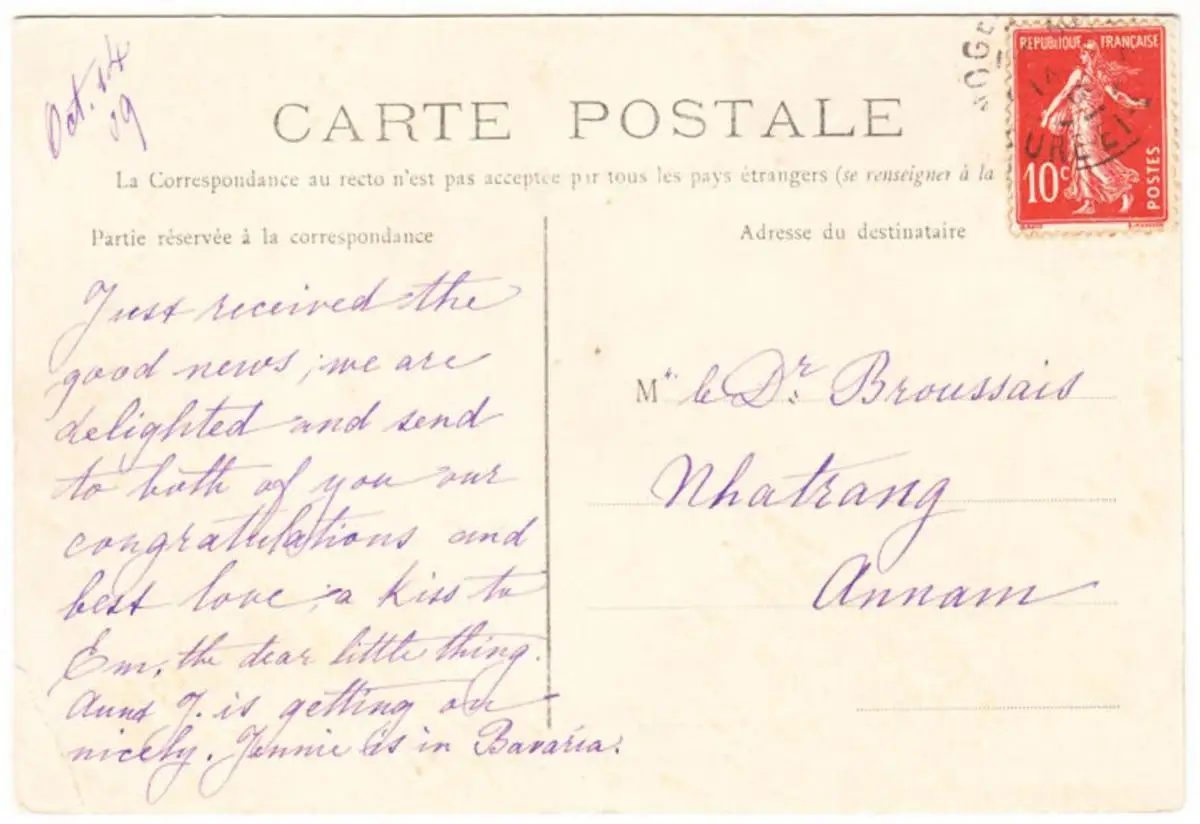 Oct. 14
09
CARTE POSTALE
La Correspondance au recto n'est pas acceptée par tous les pays étrangers (se renseigner à la
Partie réservée à la correspondance
Adresse du destinataire
Just received the
good news; we are
delighted and send
to both of you our
congratulations and
best love; a kiss to
Em, the dear little thing.
Aunt J. is getting on
nicely. Jennie is in Bavaria.
M le Dr. Broussais
Nhatrang
Annam
REPUBLIQUE FRANÇAISE
10c
POSTES